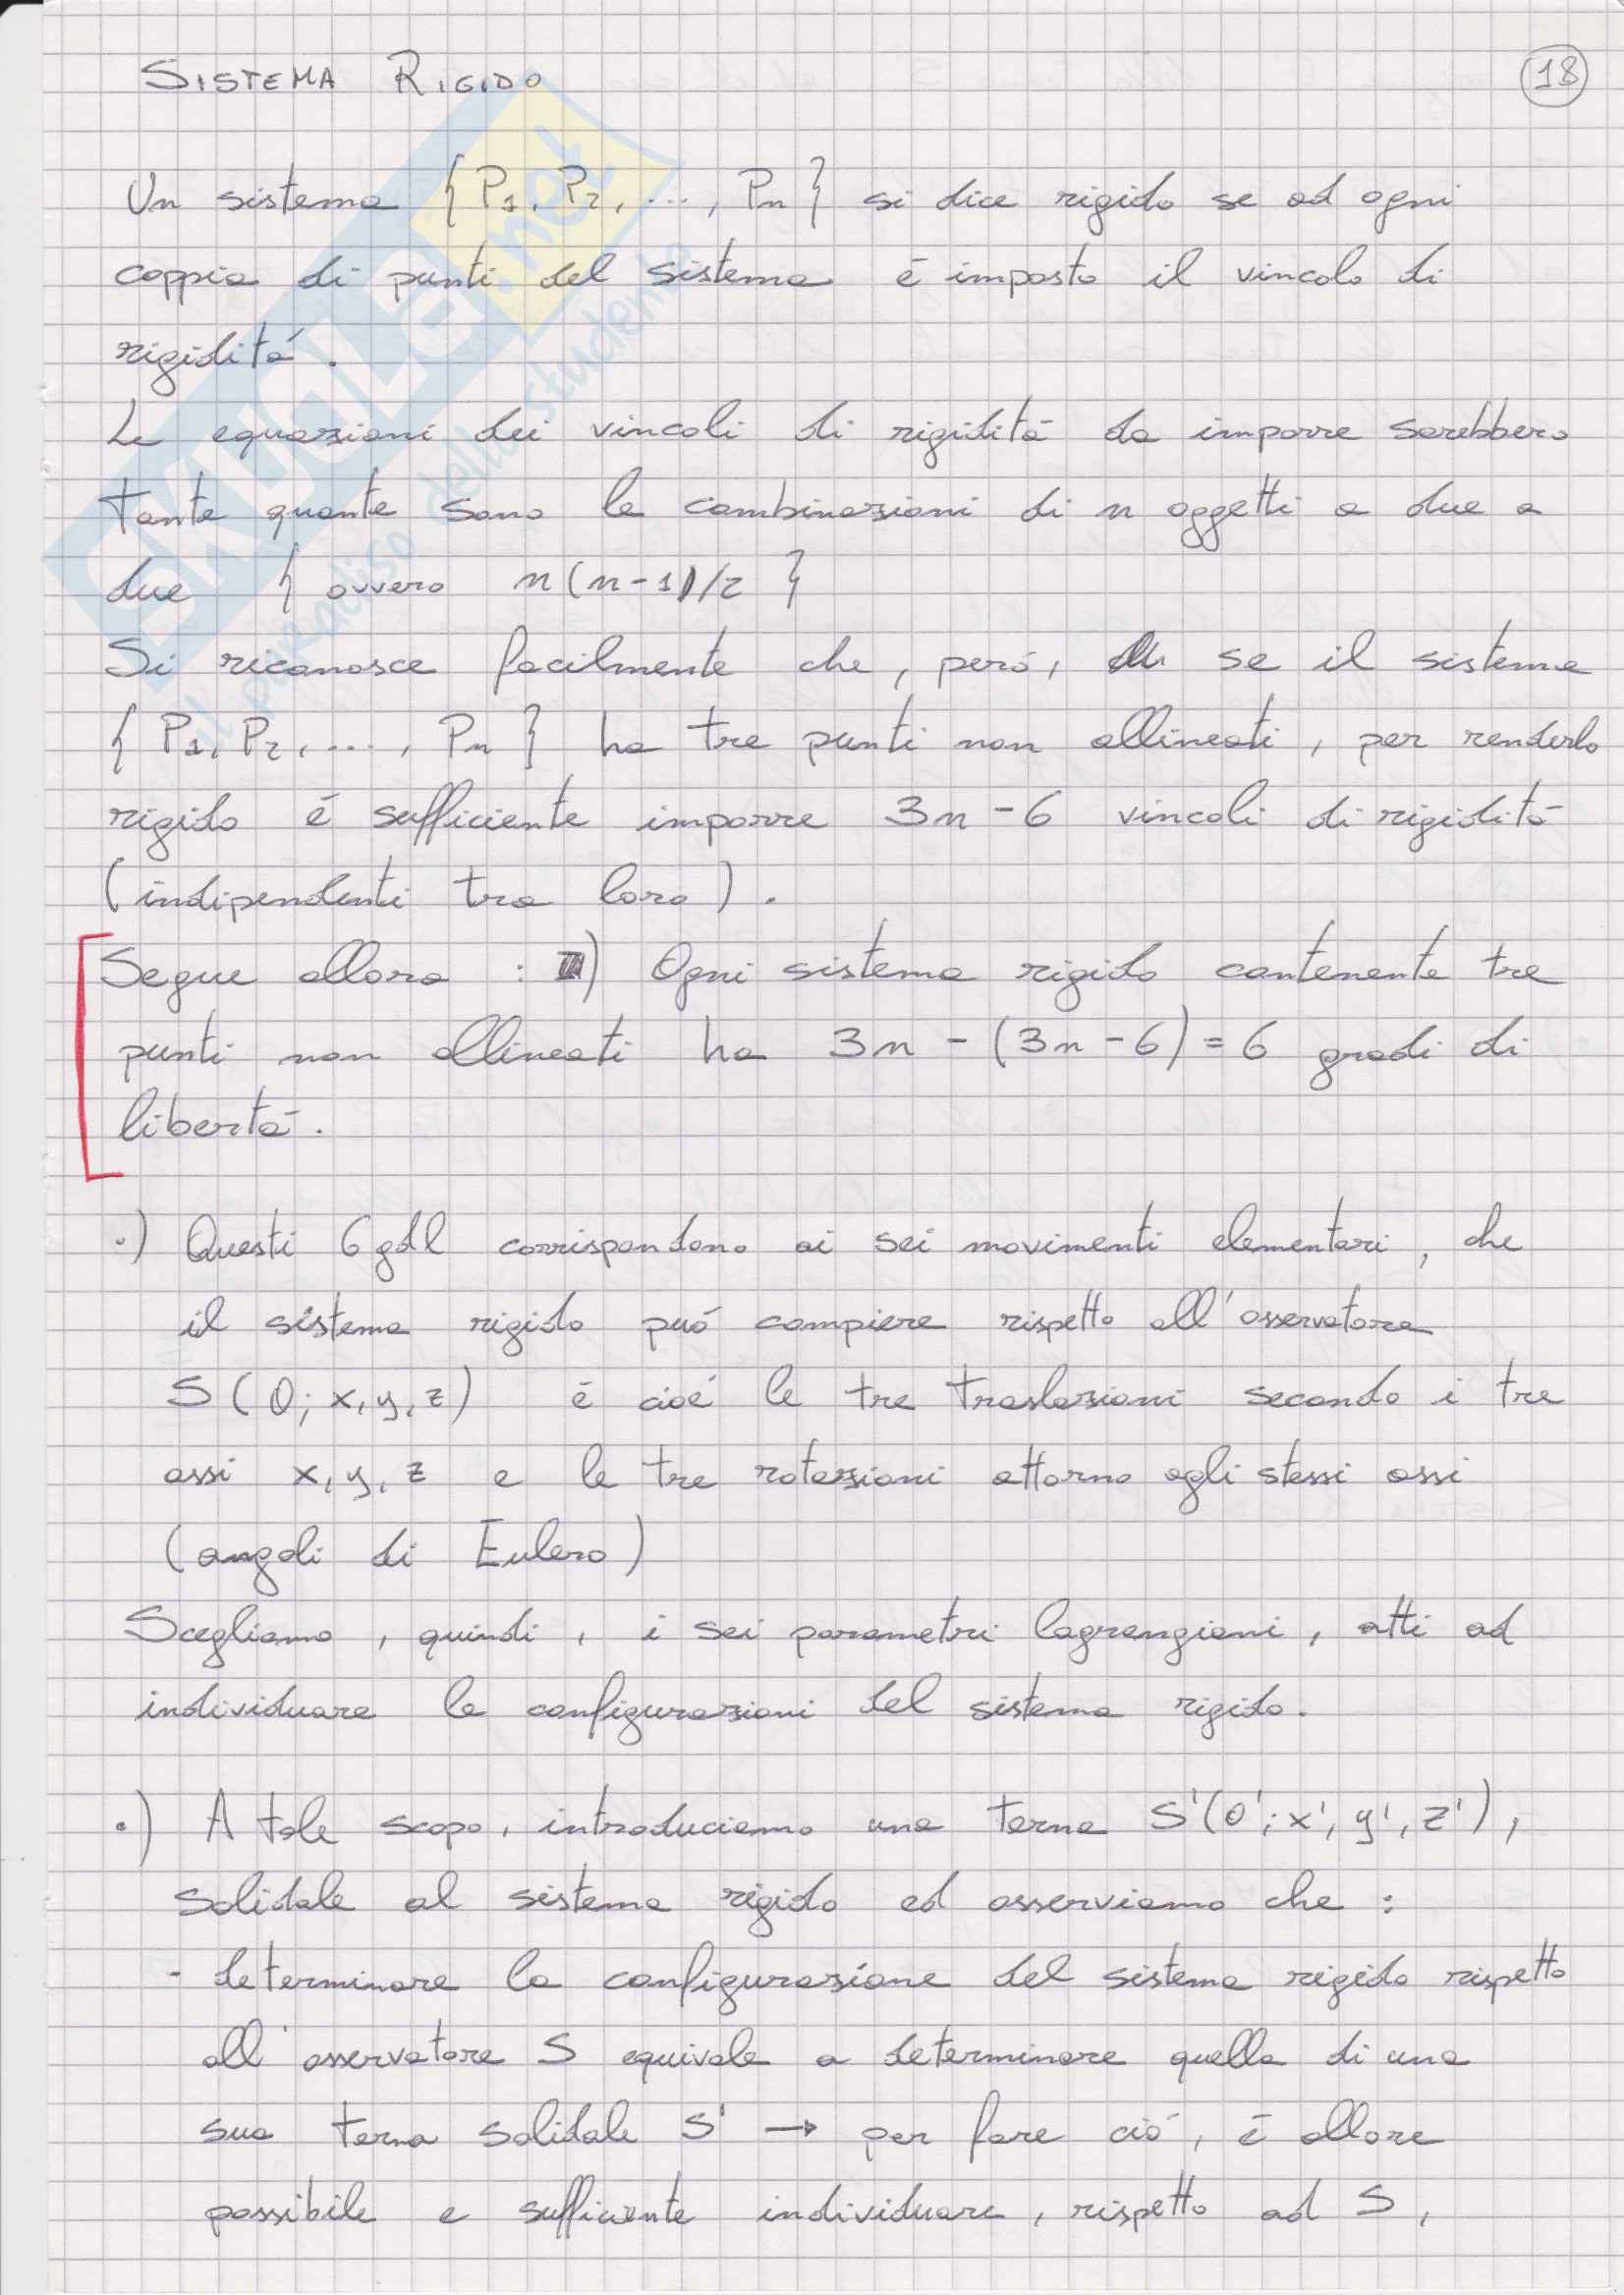 SISTEMA RIGIDO
18
Un sistema { P1, P2, ..., Pn } si dice rigido se ad ogni
coppia di punti del sistema é imposto il vincolo di
rigiditá.
Le equazioni dei vincoli di rigiditá da imporre sarebbero
tante quante sono le combinazioni di n oggetti a due a
due { ovvero n(n-1)/2 }
Si riconosce facilmente che, peró, se il sistema
{ P1, P2, ..., Pn } ha tre punti non allineati, per renderlo
rigido é sufficiente imporre 3n-6 vincoli di rigiditá
(indipendenti tra loro).
Segue allora : ) Ogni sistema rigido contenente tre
punti non allineati ha 3n - (3n-6) = 6 gradi di
libertá.
·) Questi 6 gdl corrispondono ai sei movimenti elementari, che
il sistema rigido puó compiere rispetto all'osservatore
S (O; x, y, z) é cioé le tre traslazioni secondo i tre
assi x, y, z e le tre rotazioni attorno agli stessi assi
(angoli di Eulero)
Scegliamo, quindi, i sei parametri lagrangiani, atti ad
individuare le configurazioni del sistema rigido.
·) A tale scopo, introduciamo una terna S'(O'; x', y', z'),
solidale al sistema rigido ed osserviamo che :
- determinare la configurazione del sistema rigido rispetto
all'osservatore S equivale a determinare quella di una
sua terna solidale S' → per fare ció, é allora
possibile e sufficiente individuare, rispetto ad S,
SKUOLA.net
il paradiso dello studente